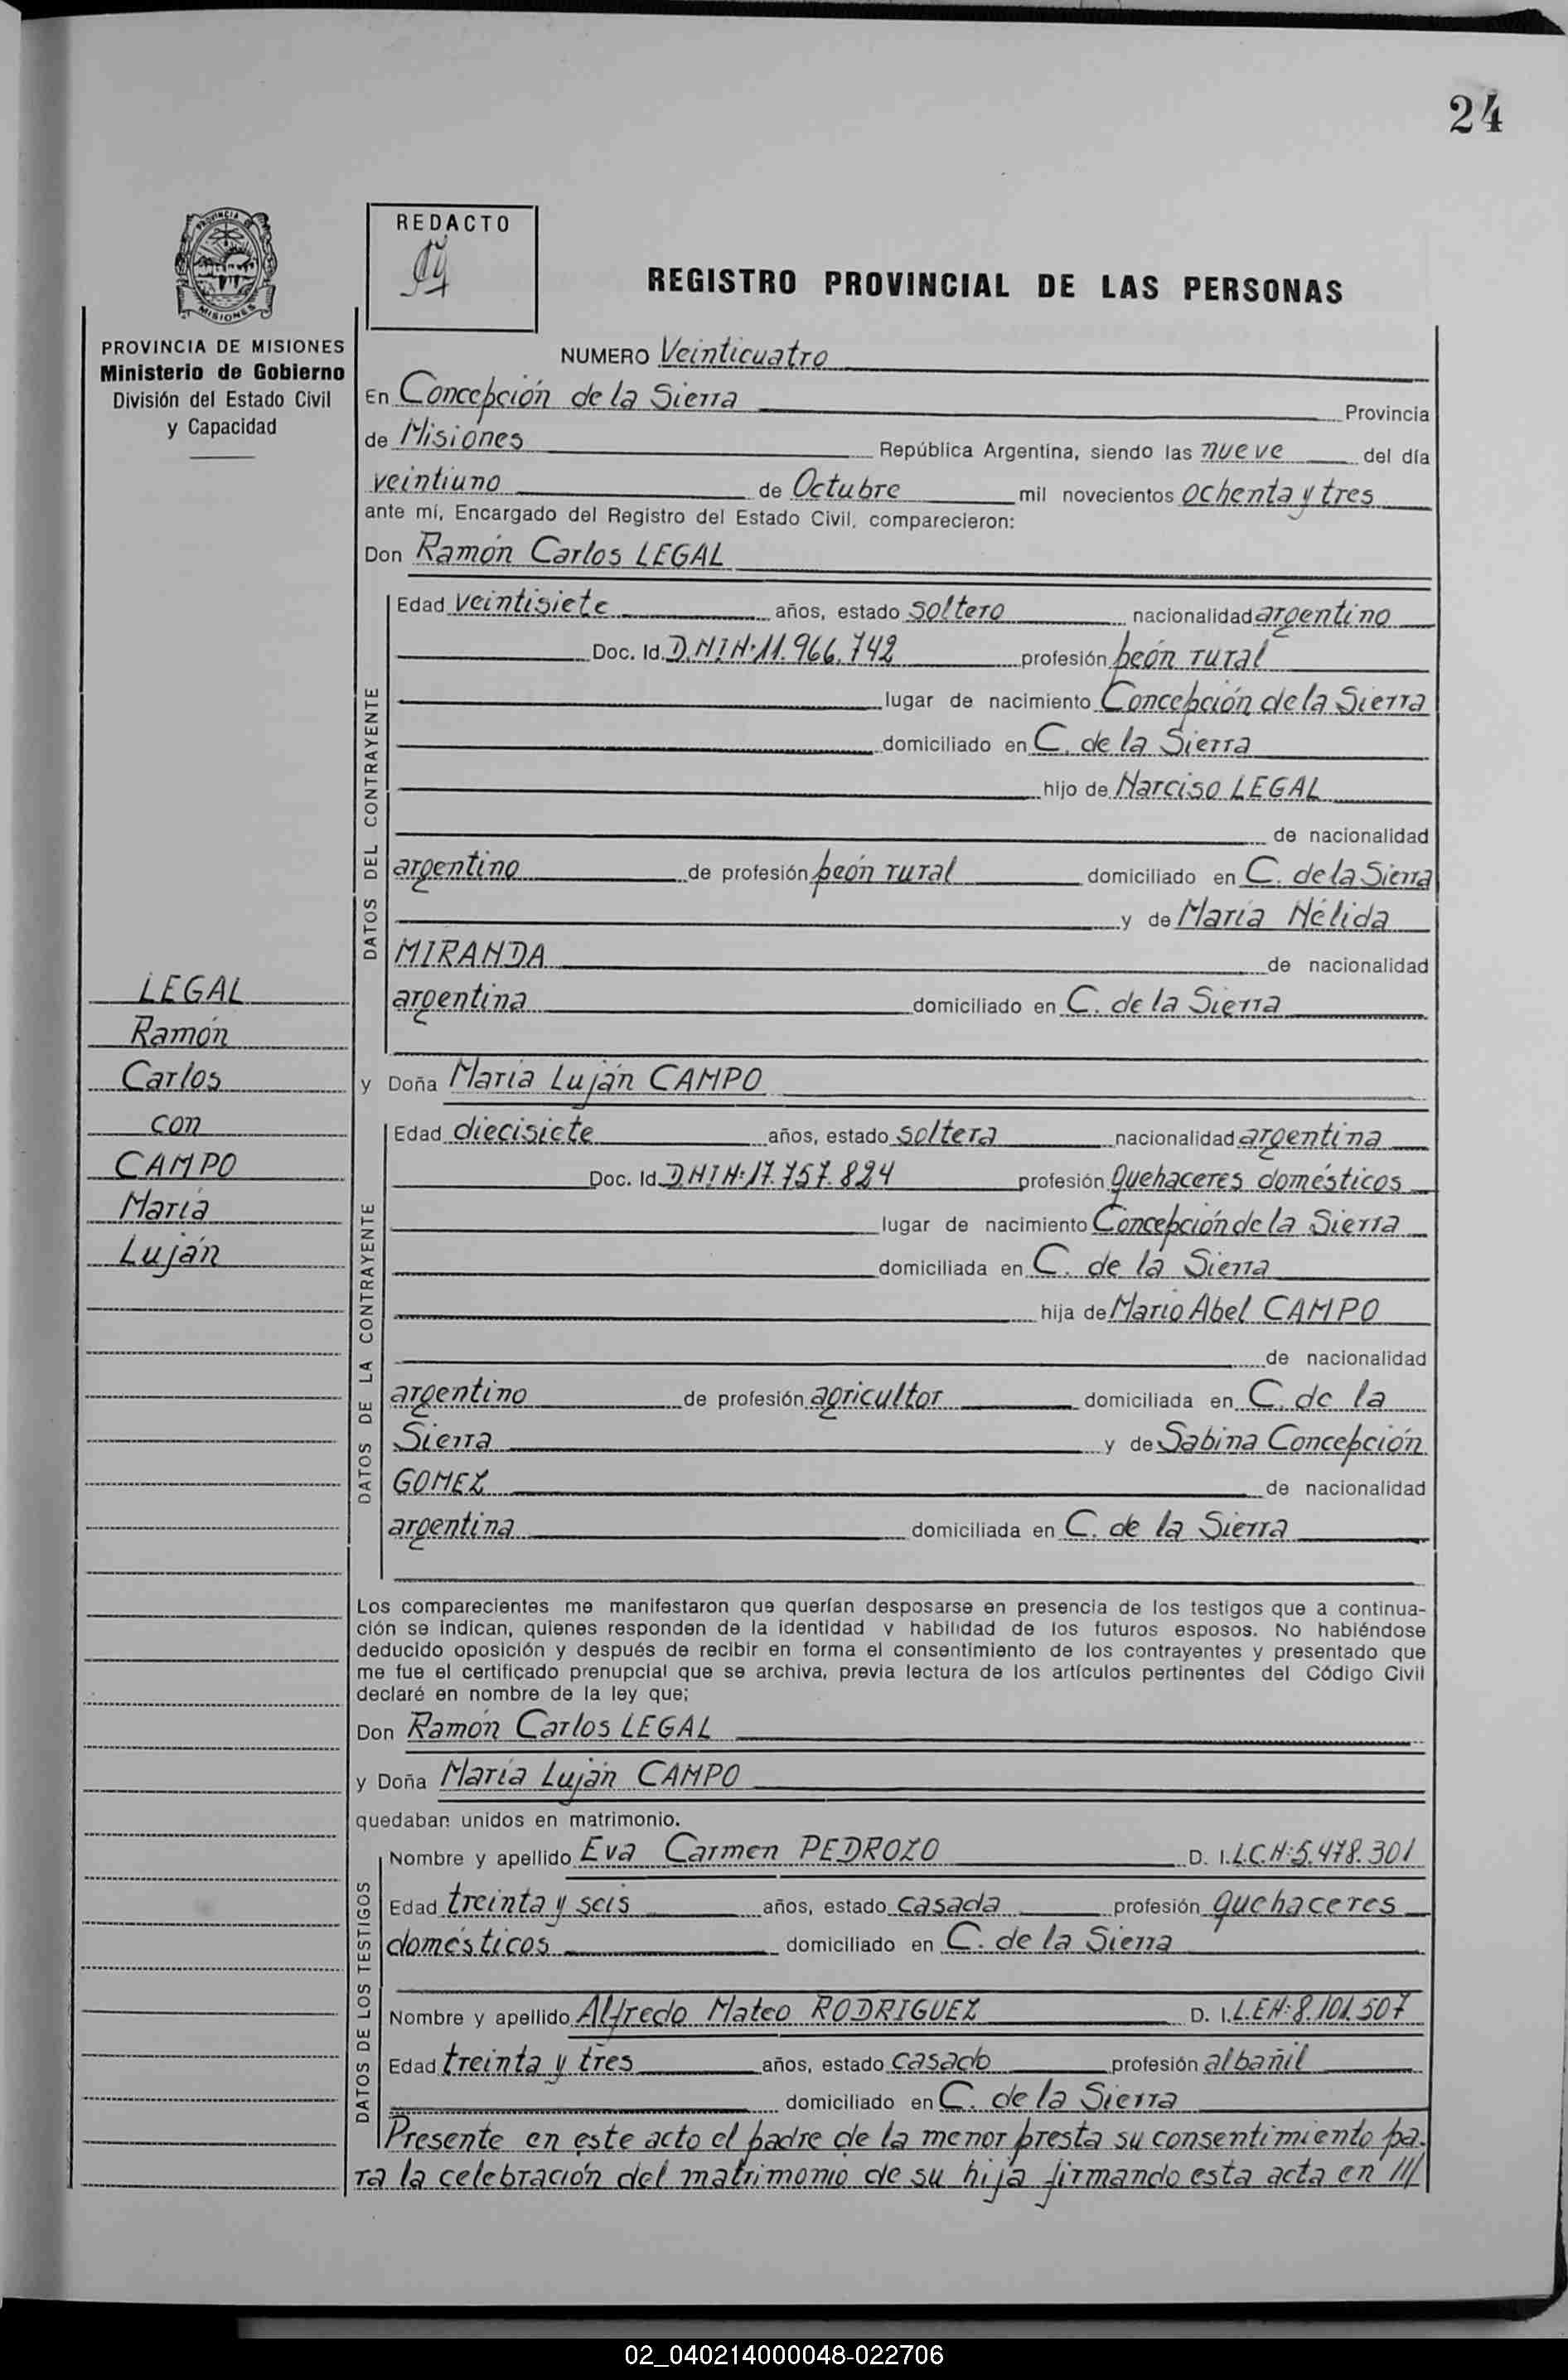 24
PROVINCIA DE
MISIONES
REDACTO
REGISTRO PROVINCIAL DE LAS PERSONAS
PROVINCIA DE MISIONES
Ministerio de Gobierno
División del Estado Civil
y Capacidad
NUMERO Veinticuatro
En Concepción de la Sierra Provincia
de Misiones República Argentina, siendo las nueve del día
veintiuno de Octubre mil novecientos ochenta y tres
ante mí, Encargado del Registro del Estado Civil, comparecieron:
Don Ramón Carlos LEGAL
DATOS DEL CONTRAYENTE
Edad veintisiete años, estado soltero nacionalidad argentino
Doc. Id. DNIN:11.966.742 profesión peón rural
lugar de nacimiento Concepción de la Sierra
domiciliado en C. de la Sierra
hijo de Narciso LEGAL
de nacionalidad
argentino de profesión peón rural domiciliado en C. de la Sierra
y de María Nélida
MIRANDA de nacionalidad
argentina domiciliado en C. de la Sierra
LEGAL
Ramón
Carlos
con
CAMPO
María
Luján
y Doña María Luján CAMPO
DATOS DE LA CONTRAYENTE
Edad diecisiete años, estado soltera nacionalidad argentina
Doc. Id. DNIN:17.757.824 profesión quehaceres domésticos
lugar de nacimiento Concepción de la Sierra
domiciliada en C. de la Sierra
hija de Mario Abel CAMPO
de nacionalidad
argentino de profesión agricultor domiciliada en C. de la
Sierra y de Sabina Concepción
GOMEZ de nacionalidad
argentina domiciliada en C. de la Sierra
Los comparecientes me manifestaron que querían desposarse en presencia de los testigos que a continua-
ción se indican, quienes responden de la identidad y habilidad de los futuros esposos. No habiéndose
deducido oposición y después de recibir en forma el consentimiento de los contrayentes y presentado que
me fue el certificado prenupcial que se archiva, previa lectura de los artículos pertinentes del Código Civil
declaré en nombre de la ley que;
Don Ramón Carlos LEGAL
y Doña María Luján CAMPO
quedaban unidos en matrimonio.
DATOS DE LOS TESTIGOS
Nombre y apellido Eva Carmen PEDROZO D. I. L.C.N:5.478.301
Edad treinta y seis años, estado casada profesión quehaceres
domésticos domiciliado en C. de la Sierra
Nombre y apellido Alfredo Mateo RODRIGUEZ D. I. L.EN:8.101.507
Edad treinta y tres años, estado casado profesión albañil
domiciliado en C. de la Sierra
Presente en este acto el padre de la menor presta su consentimiento pa-
ra la celebración del matrimonio de su hija firmando esta acta en ///
02_040214000048-022706